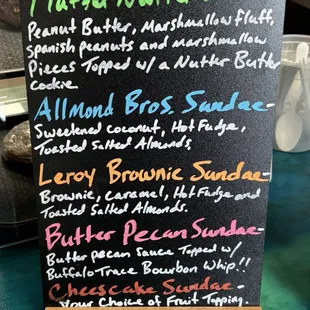 Peanut Butter, Marshmallow fluff,
Spanish peanuts and marshmallow
Pieces Topped w/a Nutter Butter
cookie
Allmond Bros. Sundae-
Sweetened coconut, Hot Fudge,
Toasted Salted Almonds.
Leroy Brownie Sundae-
Brownie, caramel, Hot Fudge and
Toasted Salted Almonds.
Butter Pecan Sundae-
Butter pecan Sauce Topped w/
Buffalo Trace Bourbon Whip!!
Cheesecake Sundae-
Your Choice of Fruit Topping.